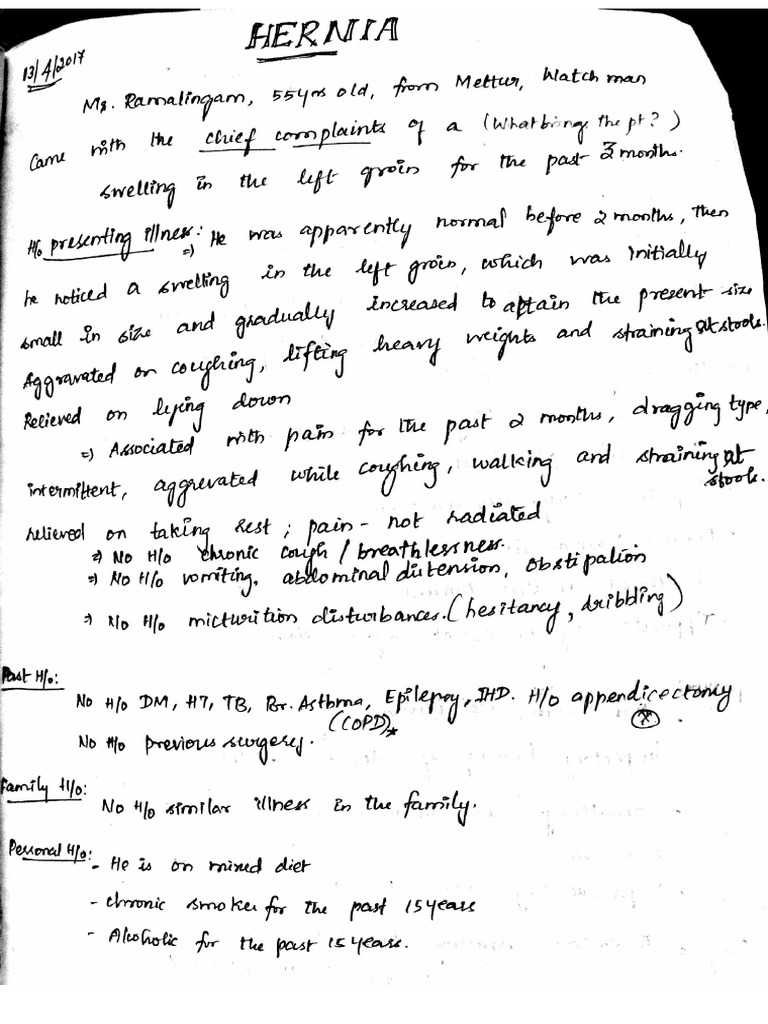 HERNIA
13/4/2017
Mr. Ramalingam, 55yrs old, from Mettur, Watch man
Came with the chief complaints of a (What brings the pt?)
swelling in the left groin for the past 3 months.
H/o presenting illness: => He was apparently normal before 2 months, then
he noticed a swelling in the left groin, which was initially
small in size and gradually increased to attain the present size
Aggravated on coughing, lifting heavy weights and straining at stools.
Relieved on lying down
=> Associated with pain for the past 2 months, dragging type,
intermittent, aggrevated while coughing, walking and straining at
stools.
relieved on taking rest; pain - not radiated
=> No H/o chronic cough / breathlessness.
=> No H/o vomiting, abdominal distension, obstipation
=> No H/o micturition disturbances. (hesitancy, dribbling)
Past H/o:
No H/o DM, HT, TB, Br. Asthma, Epilepsy, IHD. H/o appendicectomy
(COPD)*
No H/o previous surgery.
Family H/o:
No H/o similar illness in the family.
Personal H/o:
- He is on mixed diet
- chronic smoker for the past 15 years
- Alcoholic for the past 15 years.